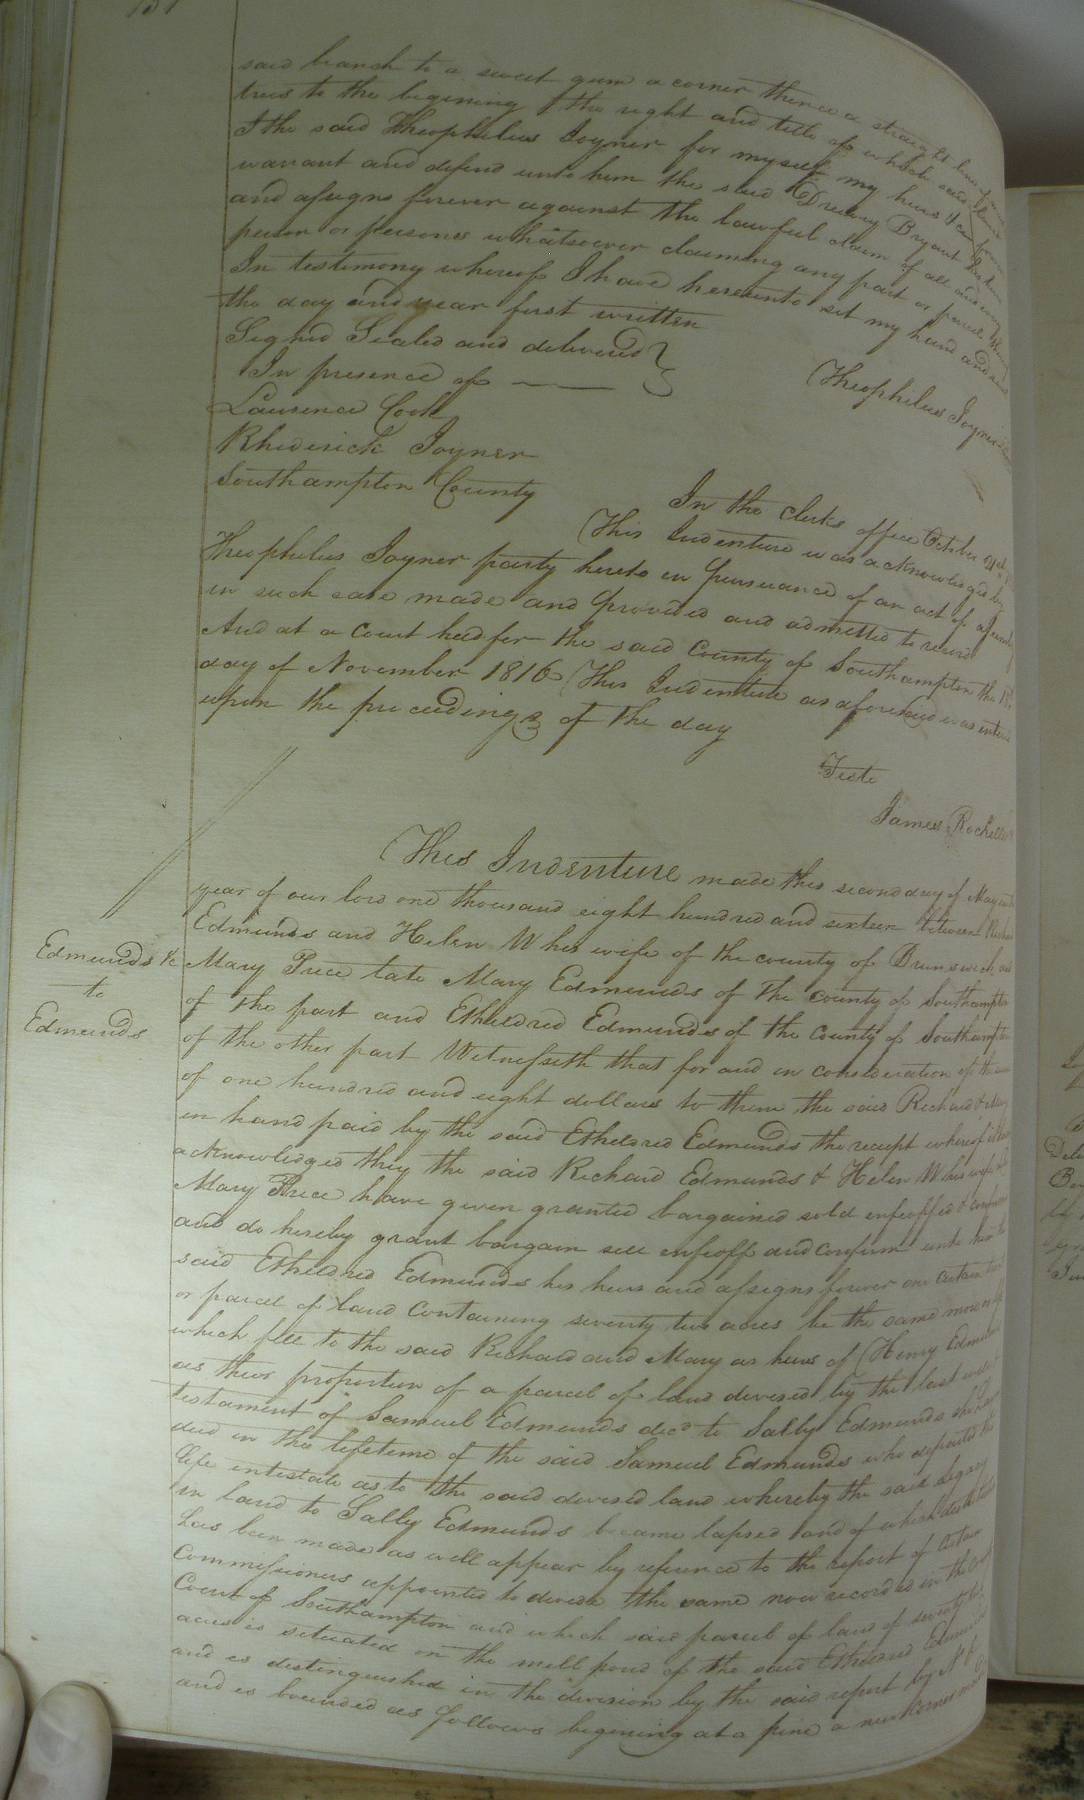 said branch to a sweet gum a corner thence a straight line of
trees to the begining the right and title of which said land
I the said Theophilus Joyner for myself my heirs &c
warant and defend unto him the said Drewry Bryant his heirs
and assigns forever against the lawful claim of all and every
person or persons whatsoever claiming any part or parcel
In testimony whereof I have hereunto set my hand and seal
the day and year first written
Signed Sealed and delivered
In presence of
Theophilus Joyner
Laurence Cook
Rhoderick Joyner
Southampton County
In the clerks office October 21st
This Indenture was acknowledged by
Theophilus Joyner party hereto in pursuance of an act of assembly
in such case made and provided and admitted to record
And at a court held for the said County of Southampton the
day of November 1816 This Indenture as aforesaid was entered
upon the proceedings of the day
Teste
James Rochelle
This Indenture made this second day of May
year of our lord one thousand eight hundred and sixteen between Richard
Edmunds and Helen W his wife of the county of Brunswick and
Edmunds &c
to
Edmunds
Mary Price late Mary Edmunds of the county of Southampton
of the part and Etheldred Edmunds of the County of Southampton
of the other part Witnesseth that for and in consideration of the
of one hundred and eight dollars to them the said Richard & Mary
in hand paid by the said Etheldred Edmunds the receipt whereof is
acknowledged they the said Richard Edmunds & Helen W his wife
Mary Price have given granted bargained sold enfeoffed &
and do hereby grant bargain sell enfeoff and confirm unto him the
said Etheldred Edmunds his heirs and assigns forever one certain tract
or parcel of land containing seventy two acres be the same more or
which fell to the said Richard and Mary as heirs of Henry Edmunds
as their proportion of a parcel of land devised by the last will &
testament of Samuel Edmunds decd to Sally Edmunds
died in the lifetime of the said Samuel Edmunds who departed this
life intestate as to the said devised land whereby the said legacy
in land to Sally Edmunds became lapsed and of which
has been made as well appear by reference to the report of certain
Commissioners appointed to divide the same now recorded in the
Court of Southampton and which said parcel of land of seventy two
acres is situated on the mill pond of the said Etheldred Edmunds
and is distinguished in the division by the said report by No
and is bounded as follows begining at a pine a new corner